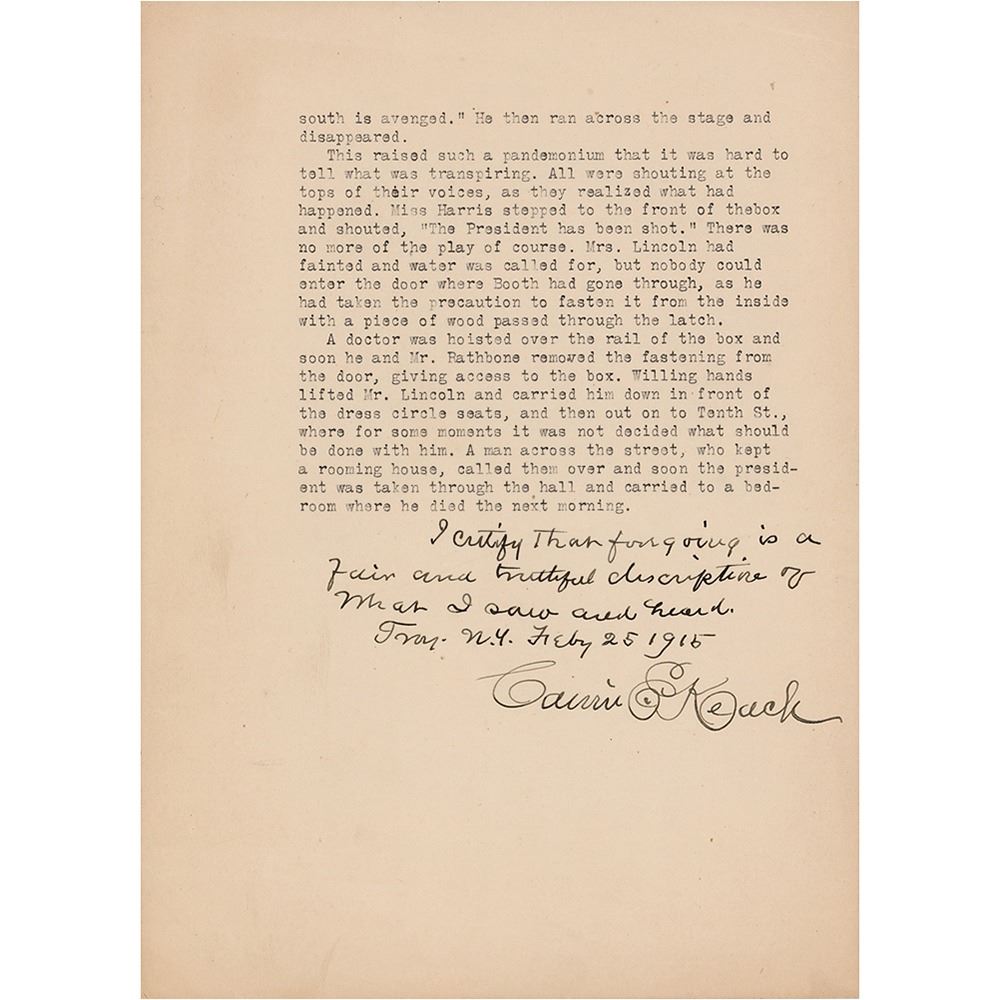 south is avenged." He then ran across the stage and
disappeared.
This raised such a pandemonium that it was hard to
tell what was transpiring. All were shouting at the
tops of their voices, as they realized what had
happened. Miss Harris stepped to the front of thebox
and shouted, "The President has been shot." There was
no more of the play of course. Mrs. Lincoln had
fainted and water was called for, but nobody could
enter the door where Booth had gone through, as he
had taken the precaution to fasten it from the inside
with a piece of wood passed through the latch.
A doctor was hoisted over the rail of the box and
soon he and Mr. Rathbone removed the fastening from
the door, giving access to the box. Willing hands
lifted Mr. Lincoln and carried him down in front of
the dress circle seats, and then out on to Tenth St.,
where for some moments it was not decided what should
be done with him. A man across the street, who kept
a rooming house, called them over and soon the presid-
ent was taken through the hall and carried to a bed-
room where he died the next morning.
I certify that forgoing is a
fair and truthful discriptive of
what I saw and heard.
Troy. N.Y. Feby 25 1915
E Keach